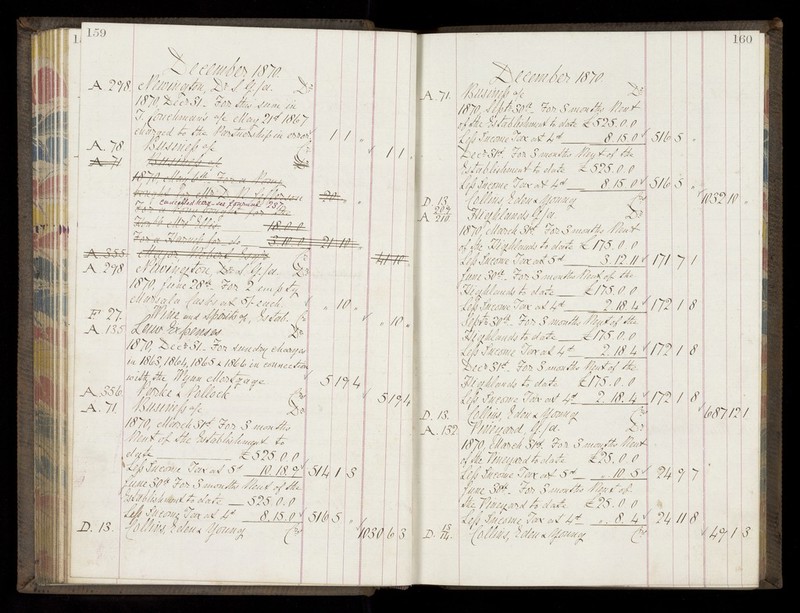 159
December 1870
A. 298 Newington, Dr S. G/a. Dr
1870, Decr 31. For this sum in
T. Couchman's a/c May 21st 1867
charged to the Partnership in error 1 1 "
A. 78 Business a/c Cr 1 1 "
A. 71
cancelled here in Journal 257
18.0.0
3.10.0 21.10.
A. 355
41.10.
A. 298 Newington, Dr S. G/a. Dr
1870, June 28th. For 2 empty
Marsala Casks at 5/- each " 10 "
F. 27. Wine and Spirits a/c, Cr " 10 "
A. 135 Law Expenses Dr
1870, Decr 31. For sundry charges
in 1863, 1864, 1865 & 1866 in connection
with the Wynn Mortgage 5 19 4
A. 356 Yorke & Pollock Cr 5 19 4
A. 71. Business a/c Dr
1870, March 31st For 3 months
Rent of the Establishment to
date £525.0.0
Less Income Tax at 5d 10.18.9 514 1 3
June 30th For 3 months Rent of the
Establishment to date 525.0.0
Less Income Tax at 4d 8.15.0 516 5 "
D. 13. Collins, Eden & Young Cr 1030 6 3
160
December 1870
A. 71. Business a/c Dr
1870, Septr 30th. For 3 months Rent
of the Establishment to date £525.0.0
Less Income Tax at 4d 8.15.0 516 5 "
Decr 31st. For 3 months Rent of the
Establishment to date £525.0.0
Less Income Tax at 4d 8.15.0 516 5 "
D. 13. Collins, Eden & Young Cr 1032 10 "
Highlands G/a Dr
1870, March 31st. For 3 months Rent
of the Highlands to date £175.0.0
Less Income Tax at 5d 3.12.11 171 7 1
June 30th. For 3 months Rent of the
Highlands to date £175.0.0
Less Income Tax at 4d 2.18.4 172 1 8
Septr 30th. For 3 months Rent of the
Highlands to date £175.0.0
Less Income Tax at 4d 2.18.4 172 1 8
Decr 31st. For 3 months Rent of the
Highlands to date £175.0.0
Less Income Tax at 4d 2.18.4 172 1 8
D. 13. Collins, Eden & Young Cr 687 12 1
A. 152. Vineyard G/a Dr
1870, March 31st. For 3 months Rent
of the Vineyard to date £25.0.0
Less Income Tax at 5d ".10.5 24 9 7
June 30th. For 3 months Rent of
the Vineyard to date £25.0.0
Less Income Tax at 4d ".8.4 24 11 8
D. Collins, Eden & Young Cr 49 1 3